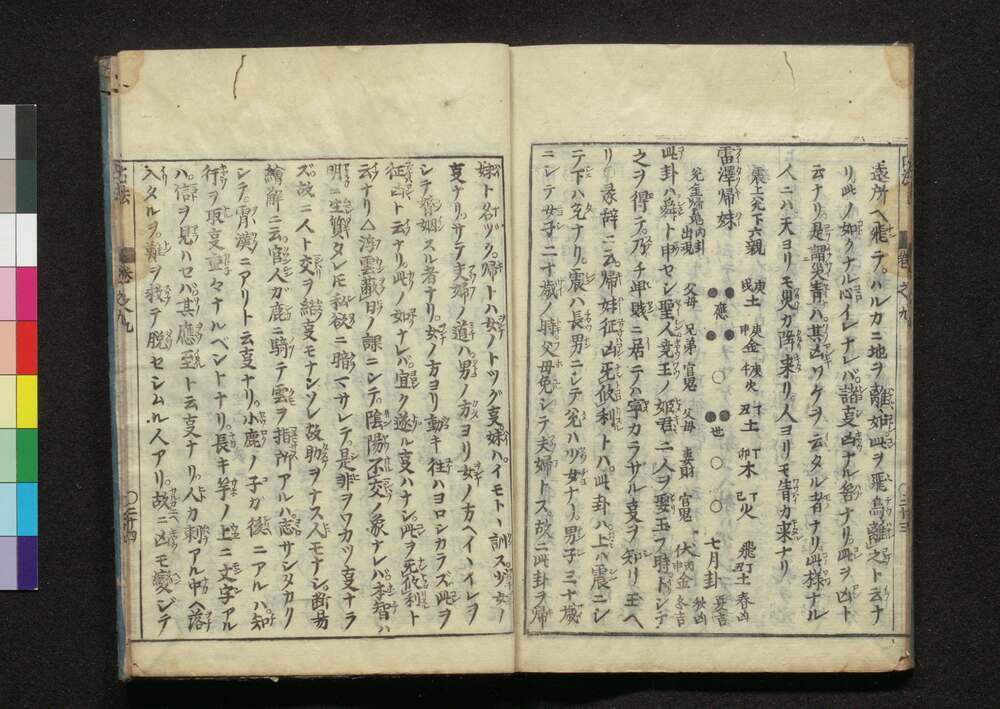 遠所ヘ飛テ。ハルカニ地ヲ離如此ヲ飛鳥離之ト云ナ
リ此ノ如クナル心イレナレバ諸事凶ナル筈ナリ此ヲ凶ト
云ナリ是謂災眚ハ其凶ワケヲ云タル者ナリ此様ナル
人ニハ天ヨリモ災ガ降来リ人ヨリモ眚カ来ナリ
震上兌下六親 庚戌土 庚申金 庚午火 丁丑土 丁卯木 丁巳火 飛丁丑土 春凶
雷澤帰妹 應 世 七月卦 夏吉
兌金 出現 父母 兄弟 官鬼 父母 妻財 官鬼 伏丙申金 秋凶 冬吉
此卦ハ舜ト申セシ聖人堯王ノ姫君二人ヲ娶玉フ時トシテ
之ヲ得テ。乃チ卑賎ニ居テハ寧カラサル事ヲ知リ玉ヘ
リ○彖辞ニ云帰妹征凶无攸利トハ此卦ハ上ハ震ニシ
テ下ハ兌ナリ。震ハ長男ニシテ兌ハ少女ナリ男子三十歳
ニシテ女子二十歳ノ時父母免シテ夫婦トス。故ニ此卦ヲ帰
妹ト名ヅク。帰トハ女ノトツグ事妹ハイモトト訓ス少女ノ
事ナリ。サテ夫婦ノ道ハ男ノ方ヨリ女ノ方ヘイハイレヲ
シテ婚姻スル者ナリ。女ノ方ヨリ動キ往ハヨロシカラズ此ヲ
征凶ト云ナリ此ノ如ナレバ。宜ク遂ル事ハナシ此ヲ无攸利ト
云ナリ△浮雲蔽日ノ課ニシテ。陰陽不交ノ象ナレバ本智ハ
明ニ生質タレ𪜈私欲ニ暗マサレテ。是非ヲワカツ事ナラ
ズ故ニ人ト交ヲ結事モナシソレ故助ヲナス人モナシ断易
繪解ニ云官人ガ鹿ニ騎テ雲ヲ指所アルハ志サシタカク
シテ。霄漢ニアリト云事ナリ。小鹿ノ子ガ後ニアルハ知
行ヲ取事重々ナルベシトナリ。長キ竿ノ上ニ文字アル
ハ信ヲ見ハセハ其應至ト云事ナリ。人カ刺アル中ヘ落
入タルヲ。難ヲ救テ脱セシムル人アリ。故ニ凶モ変ジテ
巻之九
○三十四